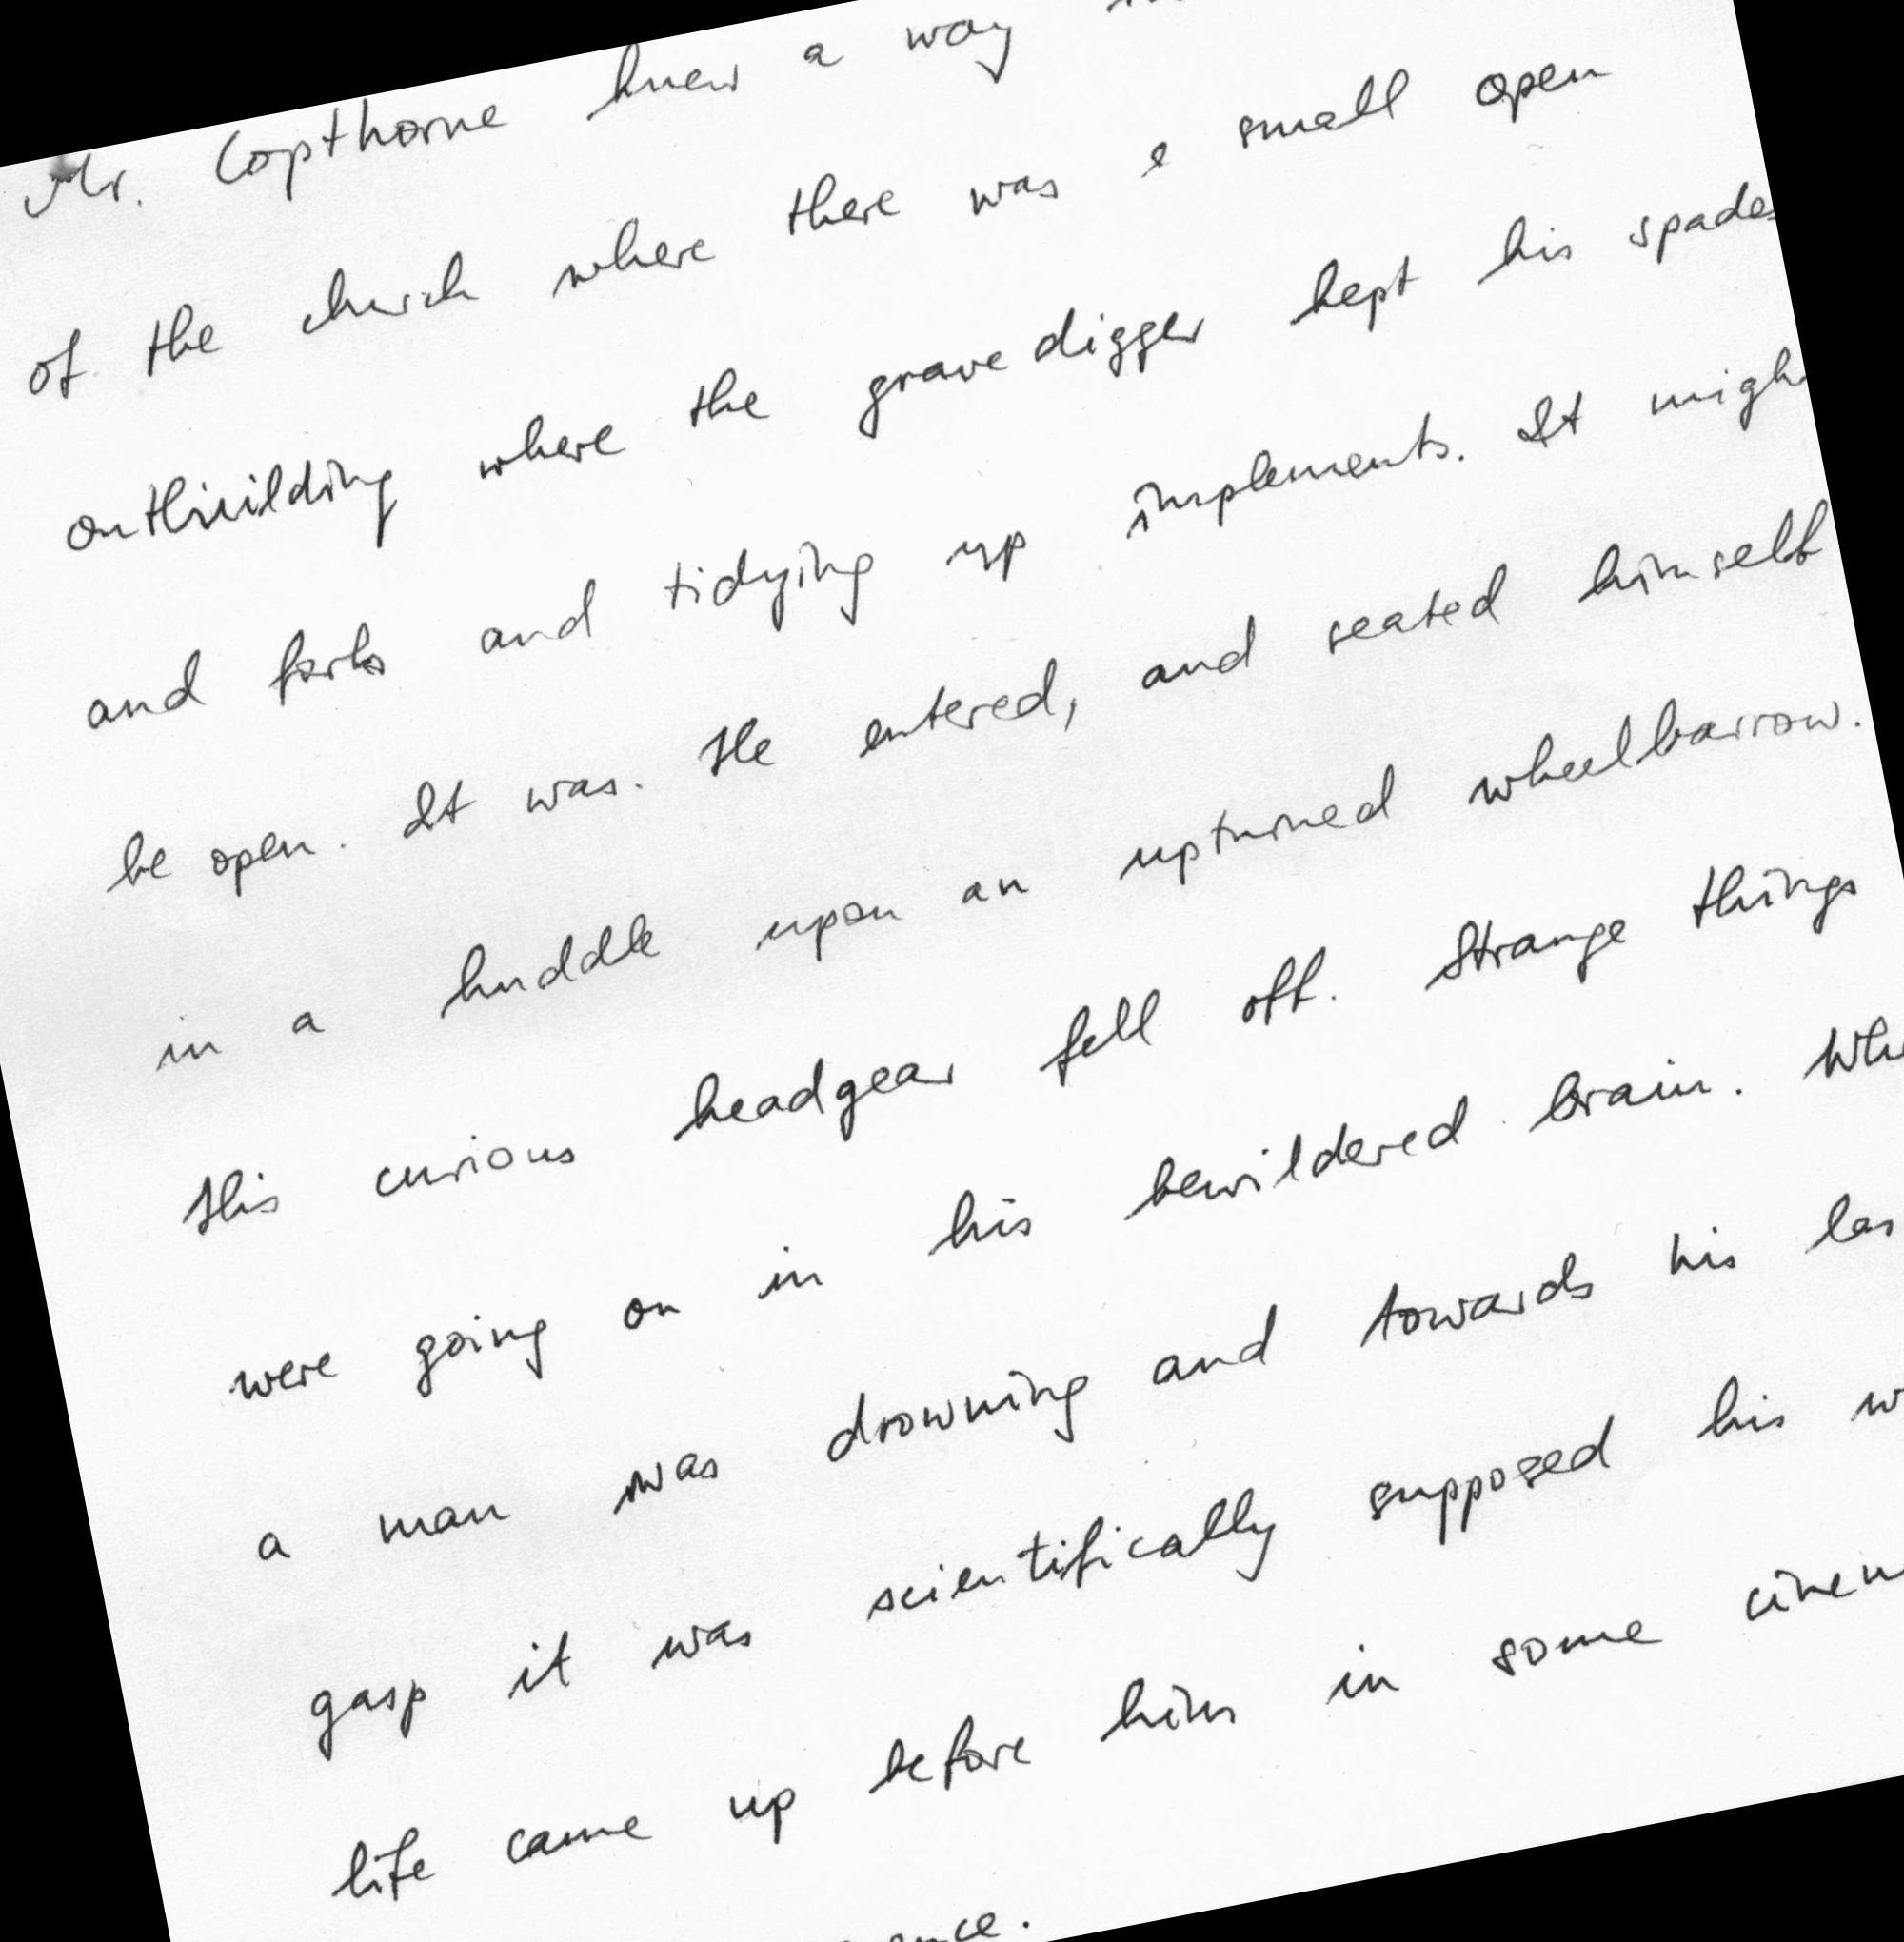 Mr. Copthorne knew a way
of the church where there was a small open
outbuilding where the gravedigger kept his spades
and forks and tidying up implements. It
be open. It was. He entered, and seated himself
in a huddle upon an upturned wheelbarrow.
His curious headgear fell off. Strange things
were going on in his bewildered brain.
a man was drowning and towards his
gasp it was scientifically supposed his
life came up before him in some